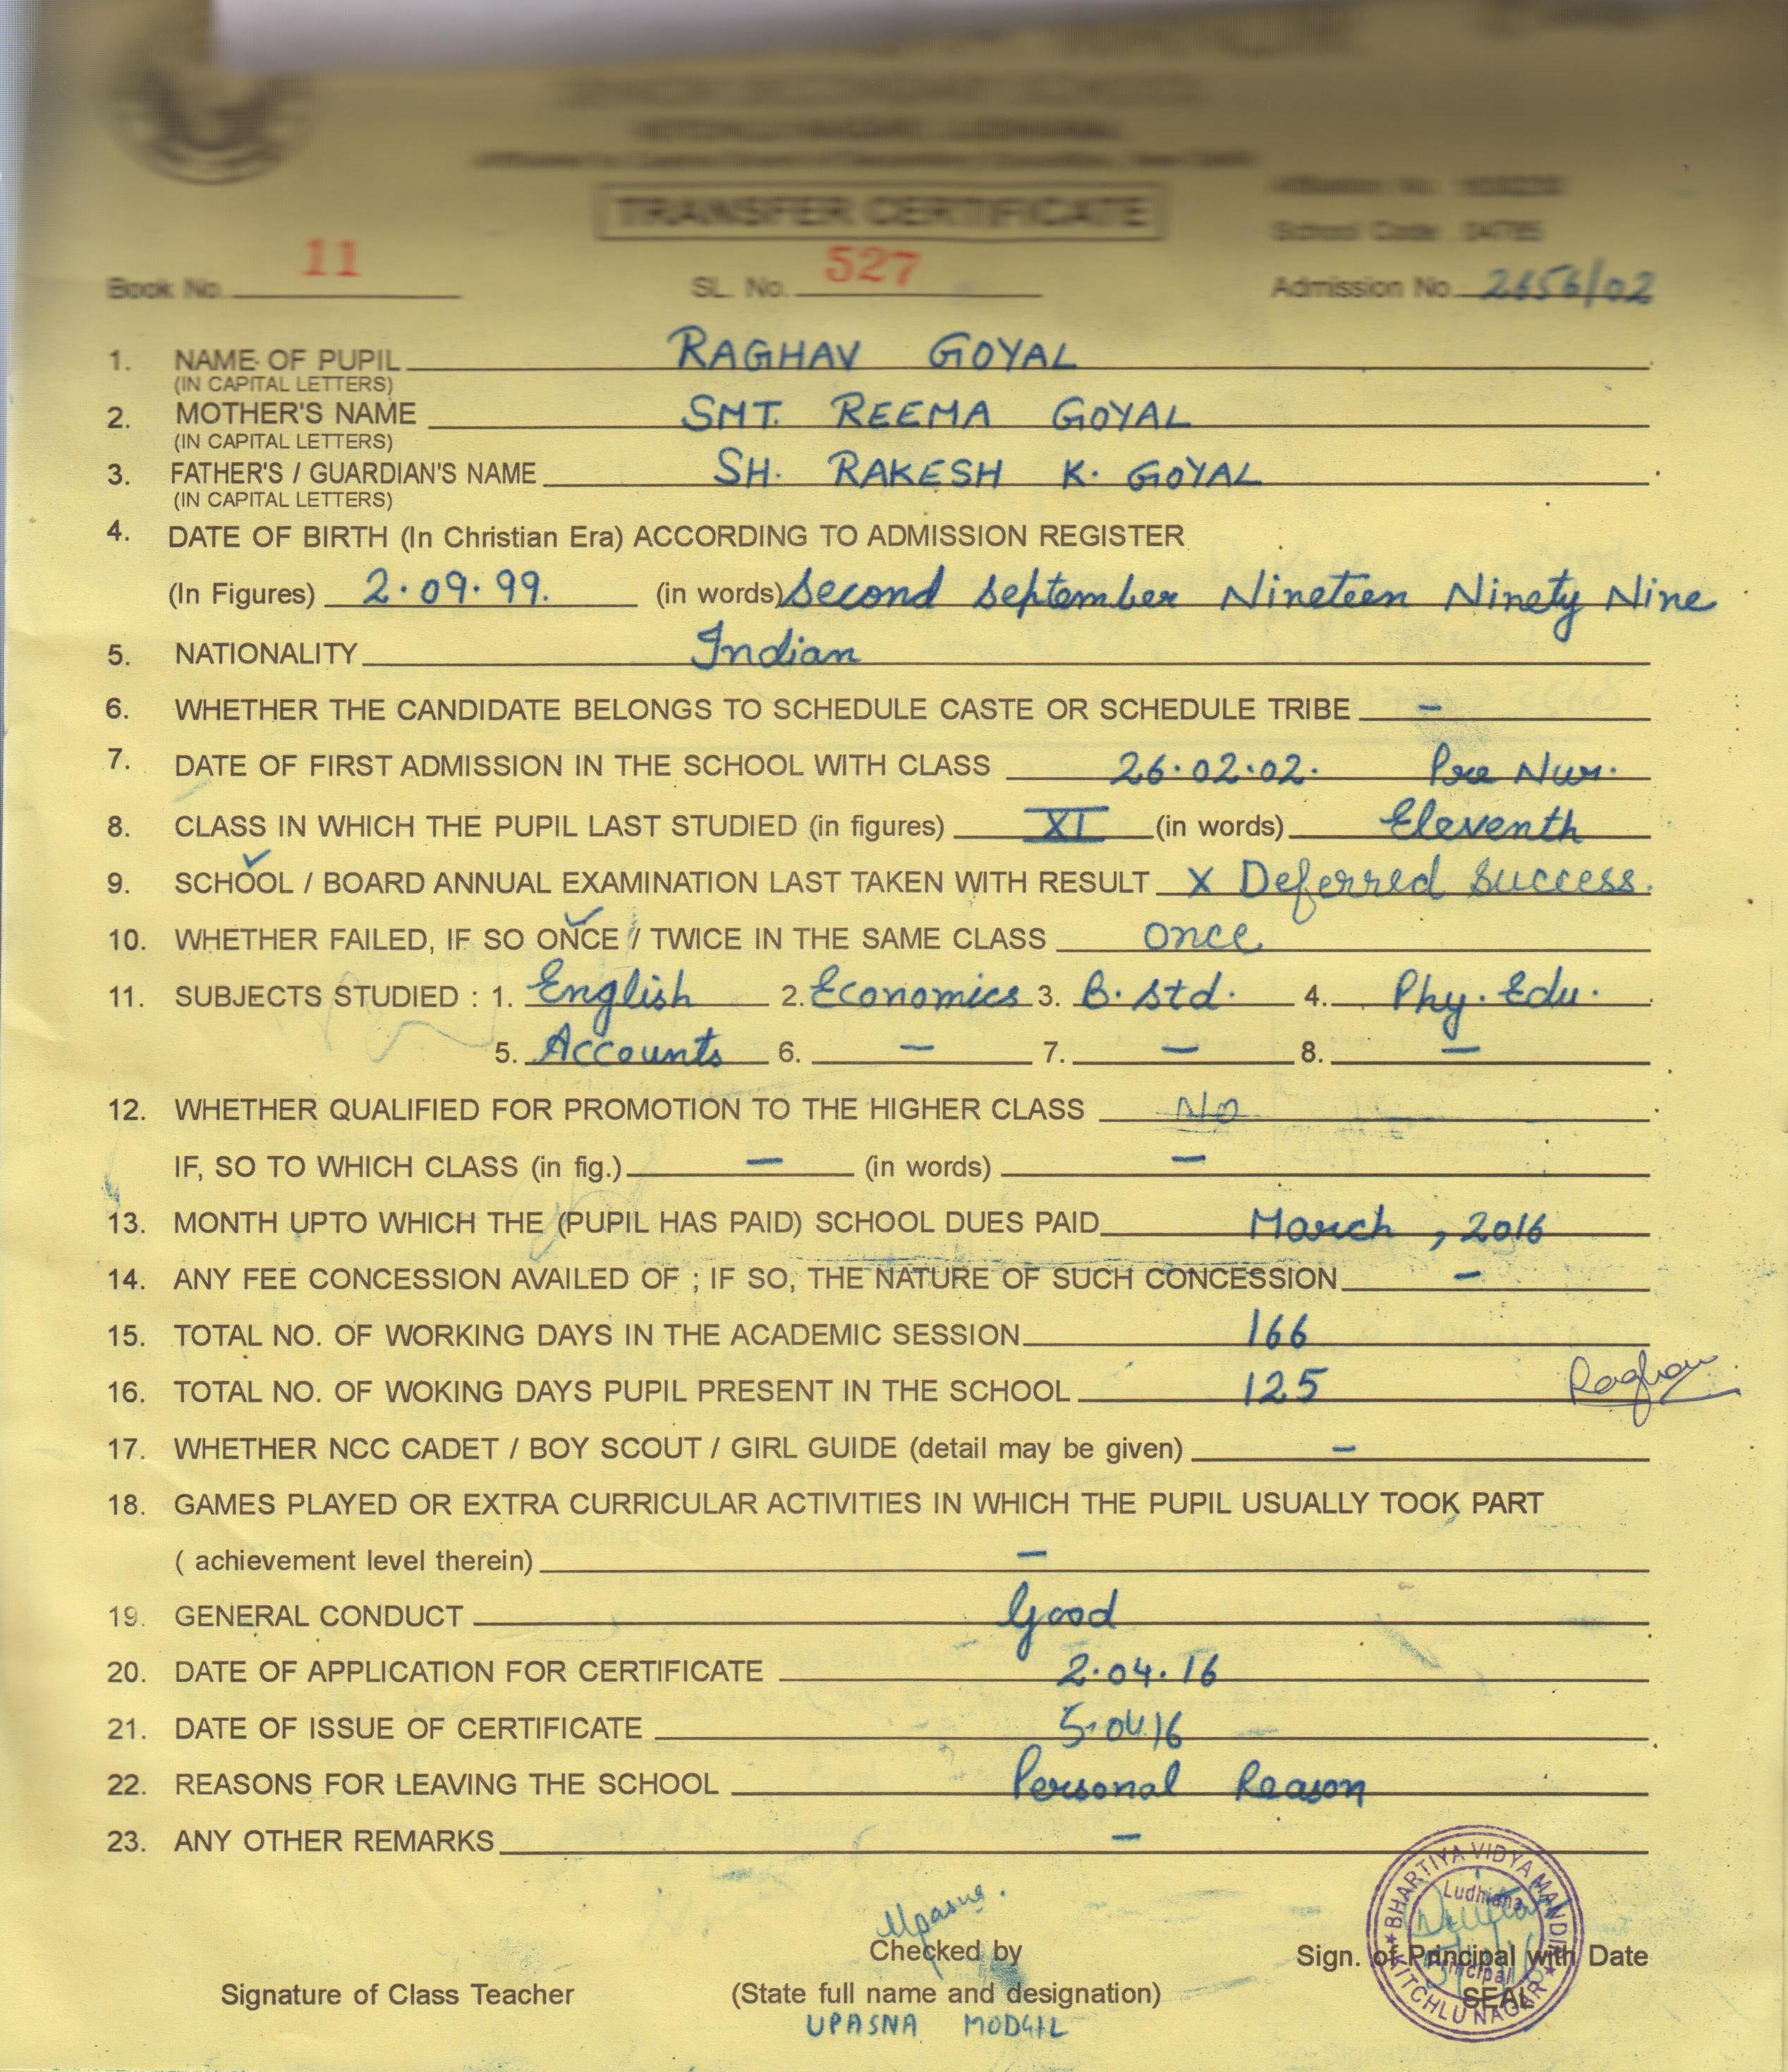 SENIOR SECONDARY SCHOOL
KITCHLU NAGAR, LUDHIANA
TRANSFER CERTIFICATE
School Code 04785
Book No. 11 SL. No. 527 Admission No. 2656/02
1. NAME OF PUPIL RAGHAV GOYAL
(IN CAPITAL LETTERS)
2. MOTHER'S NAME SMT. REEMA GOYAL
(IN CAPITAL LETTERS)
3. FATHER'S / GUARDIAN'S NAME SH. RAKESH K. GOYAL
(IN CAPITAL LETTERS)
4. DATE OF BIRTH (In Christian Era) ACCORDING TO ADMISSION REGISTER
(In Figures) 2.09.99. (in words) Second September Nineteen Ninety Nine
5. NATIONALITY Indian
6. WHETHER THE CANDIDATE BELONGS TO SCHEDULE CASTE OR SCHEDULE TRIBE –
7. DATE OF FIRST ADMISSION IN THE SCHOOL WITH CLASS 26.02.02. Pre Nur.
8. CLASS IN WHICH THE PUPIL LAST STUDIED (in figures) XI (in words) Eleventh
9. SCHOOL / BOARD ANNUAL EXAMINATION LAST TAKEN WITH RESULT X Deferred Success.
10. WHETHER FAILED, IF SO ONCE / TWICE IN THE SAME CLASS once
11. SUBJECTS STUDIED : 1. English 2. Economics 3. B. Std. 4. Phy. Edu.
5. Accounts 6. – 7. – 8. –
12. WHETHER QUALIFIED FOR PROMOTION TO THE HIGHER CLASS No
IF, SO TO WHICH CLASS (in fig.) – (in words) –
13. MONTH UPTO WHICH THE (PUPIL HAS PAID) SCHOOL DUES PAID March, 2016
14. ANY FEE CONCESSION AVAILED OF ; IF SO, THE NATURE OF SUCH CONCESSION –
15. TOTAL NO. OF WORKING DAYS IN THE ACADEMIC SESSION 166
16. TOTAL NO. OF WOKING DAYS PUPIL PRESENT IN THE SCHOOL 125 Raghav
17. WHETHER NCC CADET / BOY SCOUT / GIRL GUIDE (detail may be given) –
18. GAMES PLAYED OR EXTRA CURRICULAR ACTIVITIES IN WHICH THE PUPIL USUALLY TOOK PART
( achievement level therein) –
19. GENERAL CONDUCT Good
20. DATE OF APPLICATION FOR CERTIFICATE 2.04.16
21. DATE OF ISSUE OF CERTIFICATE 5.04.16
22. REASONS FOR LEAVING THE SCHOOL Personal Reason
23. ANY OTHER REMARKS –
BHARTIYA VIDYA MANDIR
Ludhiana
Principal
KITCHLU NAGAR
Upasna.
Checked by Sign. of Principal with Date
Signature of Class Teacher (State full name and designation) SEAL
UPASNA MODGIL